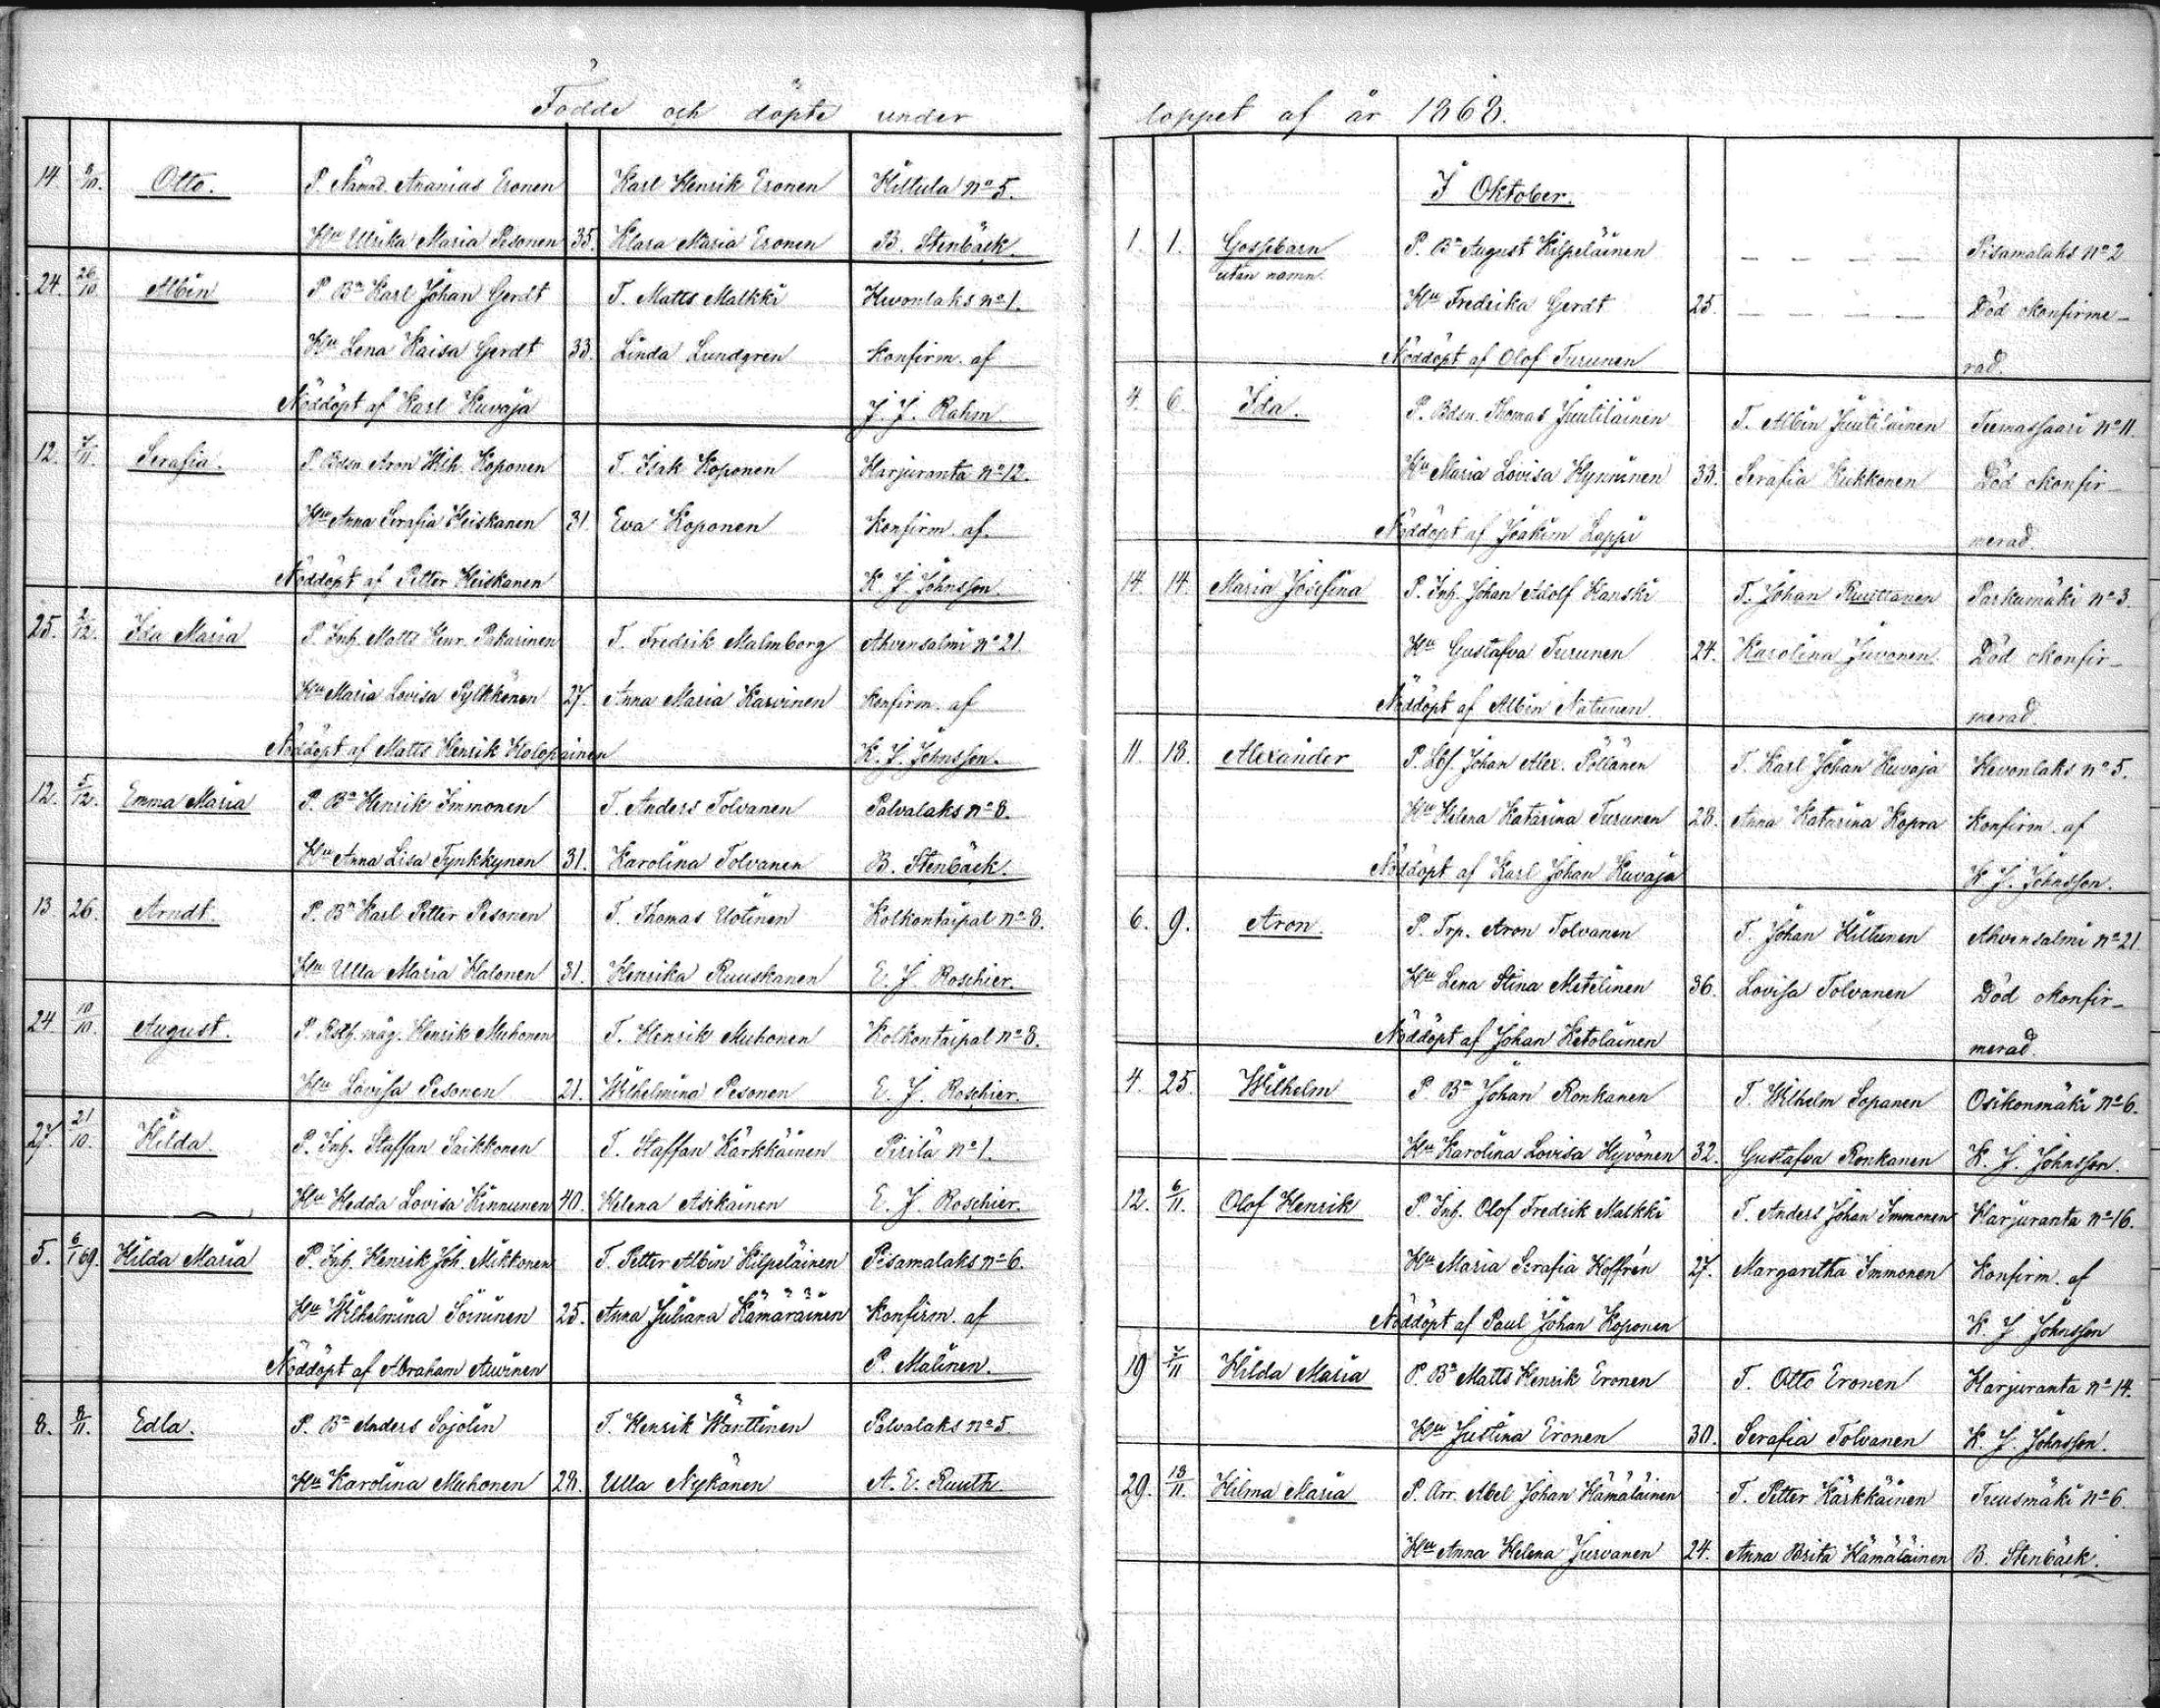 Födde och döpte under
14. 9/10. Otto. P. Nämnd. Ananias Eronen Karl Henrik Eronen Hiltula No 5.
Hu Ulrika Maria Pesonen 35. Klara Maria Eronen B. Stenbäck.
24. 26/10 Albin P. Bn Karl Johan Gerdt T. Matts Malkki Hevonlaks No 1.
Hu Lena Kaisa Gerdt 33. Linda Lundgren Konfirm. af
Nöddöpt af Karl Kuvaja J. J. Rahm.
12. 7/11. Serafia. P. Bdsn. Aron Wilh. Koponen T. Isak Koponen Harjuranta No 12.
Hu Anna Serafia Heiskanen 31. Eva Koponen Konfirm. af.
Nöddöpt af Petter Heiskanen K. J. Johnsson.
25. 2/12. Ida Maria P. Inh. Matts Henr. Pakarinen T. Fredrik Malmborg Ahvensalmi No 21
Hu Maria Lovisa Pylkkönen 27. Anna Maria Karvinen Konfirm. af
Nöddöpt af Matts Henrik Holopainen K. J. Johnsson.
12. 5/12. Emma Maria P. Bn Henrik Immonen T. Anders Tolvanen Palvalaks No 8.
Hu Anna Lisa Tynkkynen 31. Karolina Tolvanen B. Stenbäck.
13. 26. Arndt. P. Bn Karl Petter Pesonen T. Thomas Uotinen Kolkontaipal No 8.
Hu Ulla Maria Halonen 31. Henrika Ruuskanen E. J. Roschier.
24. 10/10. August. P. Rsth. måg. Henrik Muhonen T. Henrik Muhonen Kolkontaipal No 8.
Hu Lovisa Pesonen 21. Wilhelmina Pesonen E. J. Roschier.
27. 21/10. Hilda. P. Inh. Staffan Saikkonen T. Staffan Kärkkäinen Pirilä No 1.
Hu Hedda Lovisa Kinnunen 40. Helena Asikainen E. J. Roschier.
5. 6/1 69. Hilda Maria P. Inh. Henrik Joh. Mikkonen T. Petter Albin Kilpeläinen Pisamalaks No 6.
Hu Wilhelmina Soininen 25. Anna Juliana Kämäräinen Konfirm. af
Nöddöpt af Abraham Auvinen P. Malinen.
8. 8/11. Edla. P. Bn Anders Sojolin T. Henrik Wänttinen Palvalaks No 5.
Hu Karolina Muhonen 28. Ulla Nykänen A. E. Ruuth
loppet af år 1868.
I Oktober.
1. 1. Gossebarn P. Bn August Kilpeläinen - - - - Pisamalaks No 2
utan namn.
Hu Fredrika Gerdt 25. - - - - Död okonfirme-
Nöddöpt af Olof Turunen rad.
4. 6. Ida. P. Bdsn. Thomas Juutiläinen T. Albin Juutiläinen Teemassaari No 11.
Hu Maria Lovisa Hynninen 33. Serafia Kukkonen Död okonfir-
Nöddöpt af Joakim Lappi merad.
14. 14. Maria Josefina P. Inh. Johan Adolf Hanski T. Johan Ruuttanen Parkumäki No 3.
Hu Gustafva Turunen 24. Karolina Juvonen. Död okonfir-
Nöddöpt af Albin Natunen. merad.
11. 18. Alexander P. Lbf. Johan Alex. Pöllänen T. Karl Johan Kuvaja Hevonlaks No 5.
Hu Helena Katarina Turunen 28. Anna Katarina Kopra Konfirm. af
Nöddöpt af Karl Johan Kuvaja K. J. Johnsson.
6. 9. Aron. P. Trp. Aron Tolvanen T. Johan Hiltunen Ahvensalmi No 21.
Hu Lena Stina Metelinen 36. Lovisa Tolvanen Död okonfir-
Nöddöpt af Johan Ketolainen merad.
4. 25. Wilhelm P. Bn Johan Ronkanen T. Wilhelm Sopanen Osikonmäki No 6.
Hu Karolina Lovisa Hyvönen 32. Gustafva Ronkanen K. J. Johnsson.
12. 6/11. Olof Henrik P. Inh. Olof Fredrik Malkki T. Anders Johan Immonen Harjuranta No 16.
Hu Maria Serafia Hoffrén 27. Margaretha Immonen Konfirm. af
Nöddöpt af Paul Johan Koponen K. J. Johnsson
19 7/11 Hilda Maria P. Bn Matts Henrik Eronen T. Otto Eronen Harjuranta No 14.
Hu Justina Eronen 30. Serafia Tolvanen K. J. Johnsson.
29. 18/11. Hilma Maria P. Arr. Abel Johan Hämäläinen T. Petter Kärkkäinen Tuusmäki No 6
Hu Anna Helena Jurvanen 24. Anna Brita Hämäläinen B. Stenbäck.